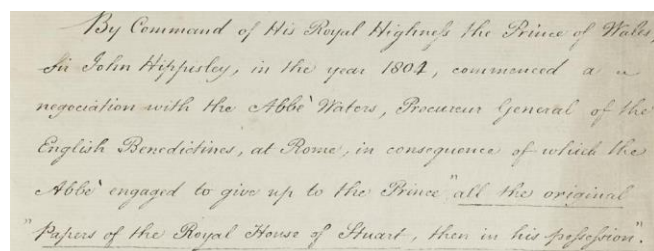 By Command of His Royal Highness the Prince of Wales,
Sir John Hippisley, in the year 1804, commenced a
negociation with the Abbé Waters, Procureur General of the
English Benedictines, at Rome, in consequence of which the
Abbé engaged to give up to the Prince "all the original
"Papers of the Royal House of Stuart, then in his possession".